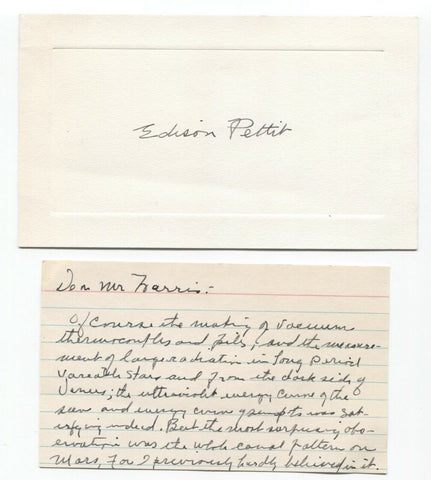 Edison Pettit
Dear Mr Harris:-
Of course the making of vacuum
thermocouples and
and the measure-
ment of large radiation in long period
variable stars and from the dark side of
Venus, the ultraviolet energy curve of the
sun and energy curve of sunspots was sat-
isfying indeed. But the most surprising obs-
ervation was the whole canal pattern on
Mars, for I previously hardly believed in it.